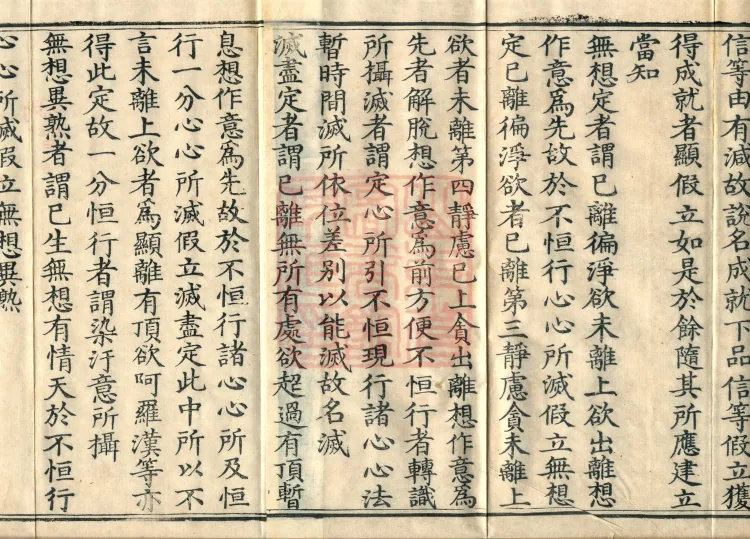 信等由有減故說名成就下品信等假立獲
得成就者顯假立如是於餘隨其所應建立
當知
無想定者謂已離徧淨欲未離上欲出離想
作意爲先故於不恒行心心所滅假立無想
定已離徧淨欲者已離第三靜慮貪未離上
欲者未離第四靜慮已上貪出離想作意爲
先者解脫想作意爲前方便不恒行者轉識
所攝滅者謂定心所引不恒現行諸心心法
暫時間滅所依位差別以能滅故名滅
滅盡定者謂已離無所有處欲超過有頂暫
息想作意爲先故於不恒行諸心心所及恒
行一分心心所滅假立滅盡定此中所以不
言未離上欲者爲顯離有頂欲阿羅漢等亦
得此定故一分恒行者謂染汙意所攝
無想異熟者謂已生無想有情天於不恒行
心心所滅假立無想異熟